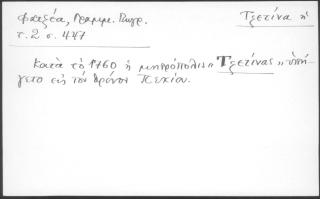 Φατζέα, Γραμμ. Γεωγρ.
τ. 2 σ. 447
Τζετίνα ἡ
Κατὰ τὸ 1760 ἡ μητρόπολις „Τζετίνας„ ὑπή-
γετο εἰς τὸν θρόνον Πεκίου.